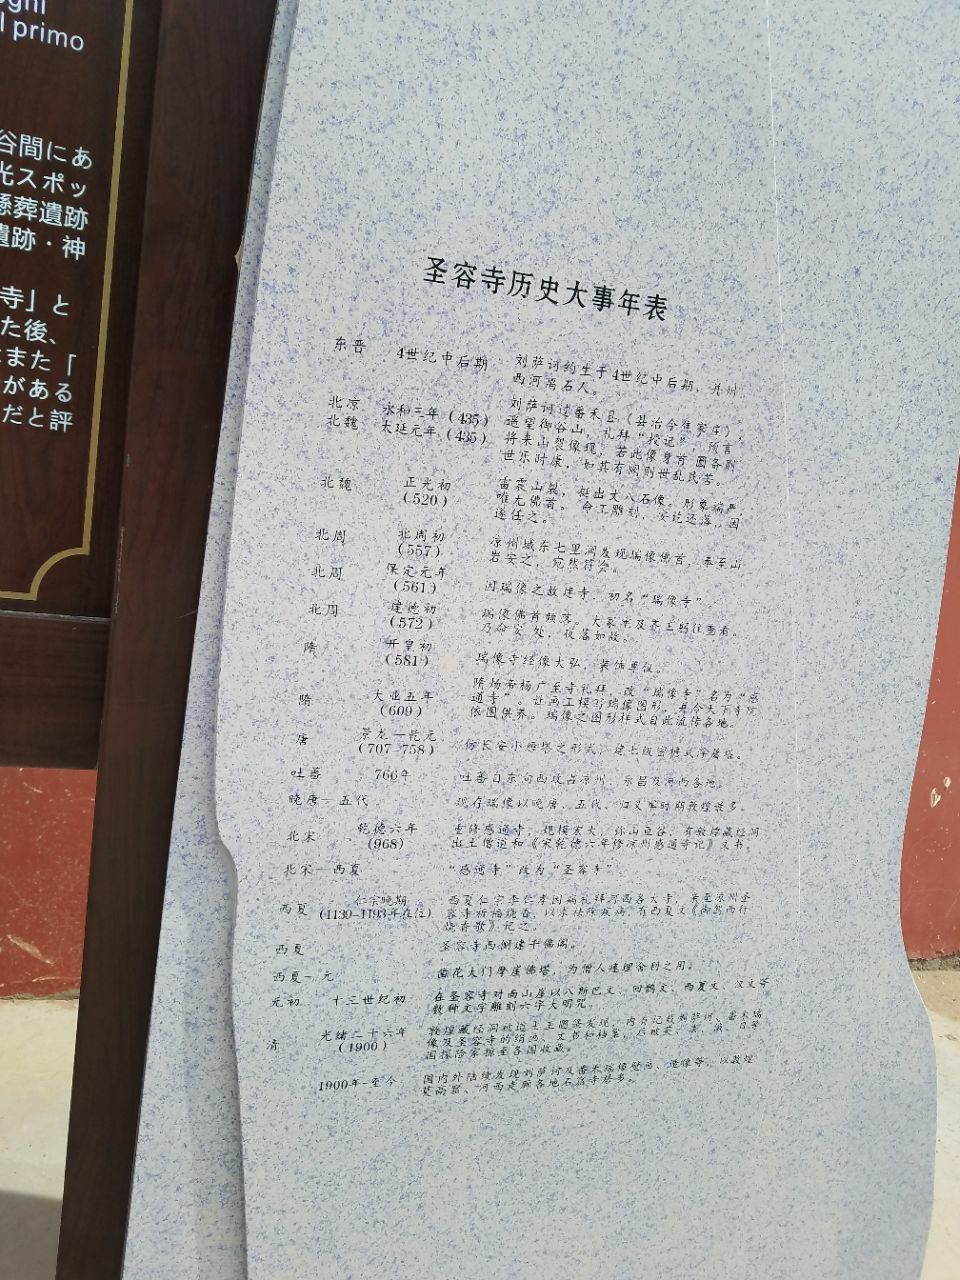 ogni
l primo
谷間にあ
光スポッ
懸葬遺跡
遺跡・神
寺」と
た後、
また「
がある
だと評
圣容寺历史大事年表
东晋 4世纪中后期 刘萨诃约生于4世纪中后期，并州
西河离石人。
北凉 永和三年（435） 刘萨诃过番禾县（县治今焦家庄），
北魏 太延元年（435） 遥望御谷山，礼拜“授记” 预言
将来山裂像现，若此像身首圆备则
世乐时康，如其有阙则世乱民苦。
北魏 正光初 雷震山裂，挺出丈八石像，形象端严，
（520） 唯无佛首。命工雕刻，安讫还落，因
遂任之。
北周 北周初 凉州城东七里涧发现瑞像佛首，奉至山
（557） 岩安之，宛然符合。
北周 保定元年 因瑞像之故建寺，初名“瑞像寺”
（561）
北周 建德初 瑞像佛首频落，大冢宰及齐王躬往查看。
（572） 乃命安处，夜落如故。
隋 开皇初 瑞像寺经像大弘，装饰尊仪。
（581）
隋 大业五年 隋炀帝杨广至寺礼拜，改“瑞像寺”名为“感
（609） 通寺”。让画工模写瑞像图形，并令天下寺院
依图供养。瑞像之图形样式自此流传各地。
唐 景龙—乾元 仿长安小雁塔之形式，建七级密檐式浮屠塔。
（707-758）
吐蕃 766年 吐蕃自东向西攻占凉州、永昌及河西各地。
晚唐—五代 现存瑞像以晚唐、五代、归义军时期敦煌最多。
北宋 乾德六年 重修感通寺，规模宏大，弥山亘谷，有敦煌藏经洞
（968） 出土僧道和《宋乾德六年修凉州感通寺记》文书。
北宋—西夏 “感通寺”改为“圣容寺”
西夏 仁宗晚期 西夏仁宗李仁孝因病礼拜河西各大寺，并至凉州圣
（1139-1193年在位） 容寺祈福烧香，以求祛除疾病，有西夏文《御驾西行
烧香歌》记之。
西夏 圣容寺西侧建千佛阁。
西夏—元 凿花大门摩崖佛塔，为僧人瘗埋舍利之用。
元初 十三世纪初 在圣容寺对面山崖以八斯巴文、回鹘文、西夏文、汉文等
数种文字雕刻六字大明咒。
清 光绪二十六年 敦煌藏经洞被道士王圆箓发现，内有记载刘萨诃、番禾瑞
（1900） 像及圣容寺的绢画、文书和档案，后被英、法、俄、日等
国探险家掠至各国收藏。
1900年-至今 国内外陆续发现刘萨诃及番禾瑞像壁画、造像等，以敦煌
莫高窟、河西走廊各地石窟寺居多。